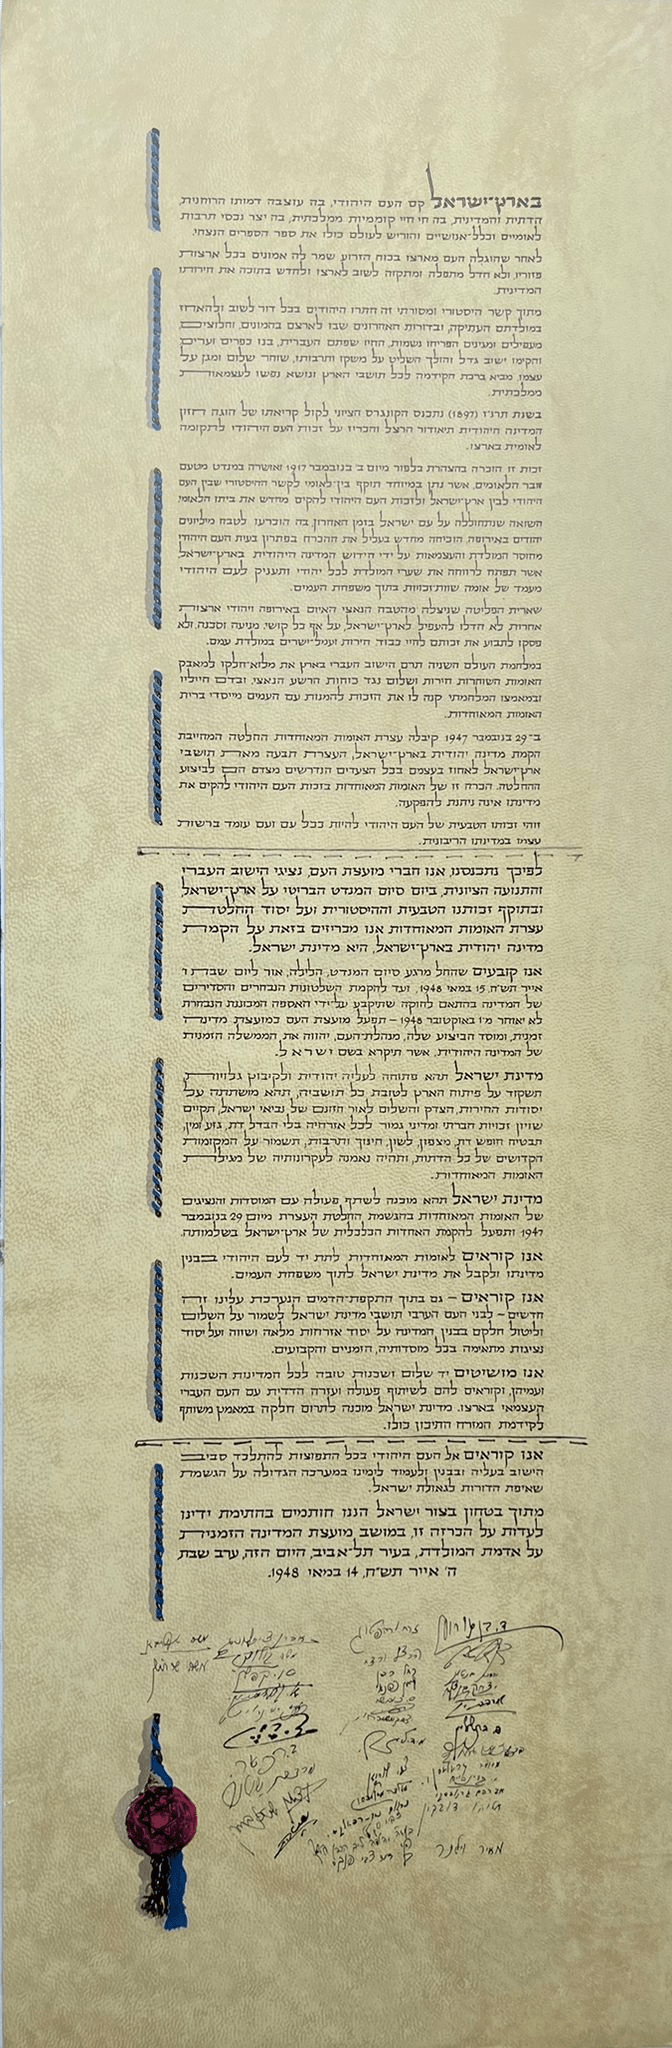 בארץ־ישראל קם העם היהודי, בה עוצבה דמותו הרוחנית,
הדתית והמדינית, בה חי חיי קוממיות ממלכתית, בה יצר נכסי תרבות
לאומיים וכלל־אנושיים והוריש לעולם כולו את ספר הספרים הנצחי.
לאחר שהוגלה העם מארצו בכוח הזרוע שמר לה אמונים בכל ארצות
פזוריו, ולא חדל מתפלה ומתקוה לשוב לארצו ולחדש בתוכה את חירותו
המדינית.
מתוך קשר היסטורי ומסורתי זה חתרו היהודים בכל דור לשוב ולהאחז
במולדתם העתיקה, ובדורות האחרונים שבו לארצם בהמונים, וחלוצים,
מעפילים ומגינים הפריחו נשמות, החיו שפתם העברית, בנו כפרים וערים
והקימו ישוב גדל והולך השליט על משקו ותרבותו, שוחר שלום ומגן על
עצמו, מביא ברכת הקידמה לכל תושבי הארץ ונושא נפשו לעצמאות
ממלכתית.
בשנת תרנ״ז (1897) נתכנס הקונגרס הציוני לקול קריאתו של הוגה חזון
המדינה היהודית תיאודור הרצל והכריז על זכות העם היהודי לתקומה
לאומית בארצו.
זכות זו הוכרה בהצהרת בלפור מיום ב׳ בנובמבר 1917 ואושרה במנדט מטעם
חבר הלאומים, אשר נתן במיוחד תוקף בין־לאומי לקשר ההיסטורי שבין העם
היהודי לבין ארץ־ישראל ולזכות העם היהודי להקים מחדש את ביתו הלאומי.
השואה שנתחוללה על עם ישראל בזמן האחרון, בה הוכרעו לטבח מיליונים
יהודים באירופה, הוכיחה מחדש בעליל את ההכרח בפתרון בעית העם היהודי
מחוסר המולדת והעצמאות על ידי חידוש המדינה היהודית בארץ־ישראל,
אשר תפתח לרווחה את שערי המולדת לכל יהודי ותעניק לעם היהודי
מעמד של אומה שוות־זכויות בתוך משפחת העמים.
שארית הפליטה שניצלה מהטבח הנאצי האיום באירופה ויהודי ארצות
אחרות לא חדלו להעפיל לארץ־ישראל, על אף כל קושי, מניעה וסכנה, ולא
פסקו לתבוע את זכותם לחיי כבוד, חירות ועמל־ישרים במולדת עמם.
במלחמת העולם השניה תרם הישוב העברי בארץ את מלוא־חלקו למאבק
האומות השוחרות חירות ושלום נגד כוחות הרשע הנאצי, ובדם חייליו
ובמאמצו המלחמתי קנה לו את הזכות להמנות עם העמים מייסדי ברית
האומות המאוחדות.
ב־29 בנובמבר 1947 קיבלה עצרת האומות המאוחדות החלטה המחייבת
הקמת מדינה יהודית בארץ־ישראל, העצרת תבעה מאת תושבי
ארץ־ישראל לאחוז בעצמם בכל הצעדים הנדרשים מצדם הם לביצוע
ההחלטה. הכרה זו של האומות המאוחדות בזכות העם היהודי להקים את
מדינתו אינה ניתנת להפקעה.
זוהי זכותו הטבעית של העם היהודי להיות ככל עם ועם עומד ברשות
עצמו במדינתו הריבונית.
לפיכך נתכנסנו, אנו חברי מועצת העם, נציגי הישוב העברי
והתנועה הציונית, ביום סיום המנדט הבריטי על ארץ־ישראל,
ובתוקף זכותנו הטבעית וההיסטורית ועל יסוד החלטת
עצרת האומות המאוחדות אנו מכריזים בזאת על הקמת
מדינה יהודית בארץ־ישראל, היא מדינת ישראל.
אנו קובעים שהחל מרגע סיום המנדט, הלילה, אור ליום שבת ו׳
אייר תש״ח, 15 במאי 1948, ועד להקמת השלטונות הנבחרים והסדירים
של המדינה בהתאם לחוקה שתיקבע על־ידי האספה המכוננת הנבחרת
לא יאוחר מ־1 באוקטובר 1948 – תפעל מועצת העם כמועצת מדינה
זמנית, ומוסד הביצוע שלה, מנהלת־העם, יהווה את הממשלה הזמנית
של המדינה היהודית, אשר תיקרא בשם ישראל.
מדינת ישראל תהא פתוחה לעליה יהודית ולקיבוץ גלויות,
תשקוד על פיתוח הארץ לטובת כל תושביה, תהא מושתתה על
יסודות החירות, הצדק והשלום לאור חזונם של נביאי ישראל, תקיים
שויון זכויות חברתי ומדיני גמור לכל אזרחיה בלי הבדל דת, גזע ומין,
תבטיח חופש דת, מצפון, לשון, חינוך ותרבות, תשמור על המקומות
הקדושים של כל הדתות, ותהיה נאמנה לעקרונותיה של מגילת
האומות המאוחדות.
מדינת ישראל תהא מוכנה לשתף פעולה עם המוסדות והנציגים
של האומות המאוחדות בהגשמת החלטת העצרת מיום 29 בנובמבר
1947 ותפעל להקמת האחדות הכלכלית של ארץ־ישראל בשלמותה.
אנו קוראים לאומות המאוחדות לתת יד לעם היהודי בבנין
מדינתו ולקבל את מדינת ישראל לתוך משפחת העמים.
אנו קוראים – גם בתוך התקפת־הדמים הנערכת עלינו זה
חדשים – לבני העם הערבי תושבי מדינת ישראל לשמור על השלום
וליטול חלקם בבנין המדינה על יסוד אזרחות מלאה ושווה ועל יסוד
נציגות מתאימה בכל מוסדותיה, הזמניים והקבועים.
אנו מושיטים יד שלום ושכנות טובה לכל המדינות השכנות
ועמיהן, וקוראים להם לשיתוף פעולה ועזרה הדדית עם העם העברי
העצמאי בארצו. מדינת ישראל מוכנה לתרום חלקה במאמץ משותף
לקידמת המזרח התיכון כולו.
אנו קוראים אל העם היהודי בכל התפוצות להתלכד סביב
הישוב בעליה ובבנין ולעמוד לימינו במערכה הגדולה על הגשמת
שאיפת הדורות לגאולת ישראל.
מתוך בטחון בצור ישראל הננו חותמים בחתימת ידינו
לעדות על הכרזה זו, במושב מועצת המדינה הזמנית,
על אדמת המולדת, בעיר תל־אביב, היום הזה, ערב שבת,
ה׳ אייר תש״ח, 14 במאי 1948.
ד. בן גוריון
מאיר וילנר